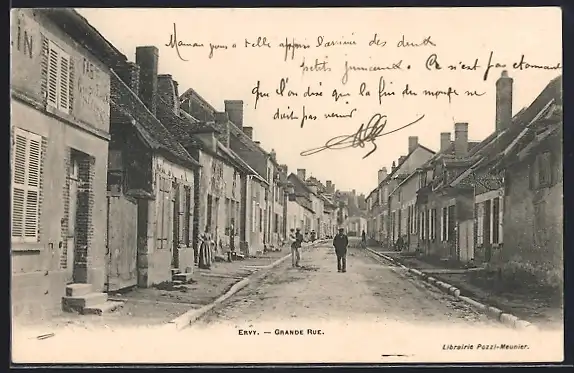 Maman vous a telle appris l'arrivée des deux
petits jumeaux. Ce n'est pas étonnant
que l'on dise que la fin du monde ne
doit pas venir.
IN
TAB
ERVY. — GRANDE RUE.
Librairie Pozzi-Meunier.